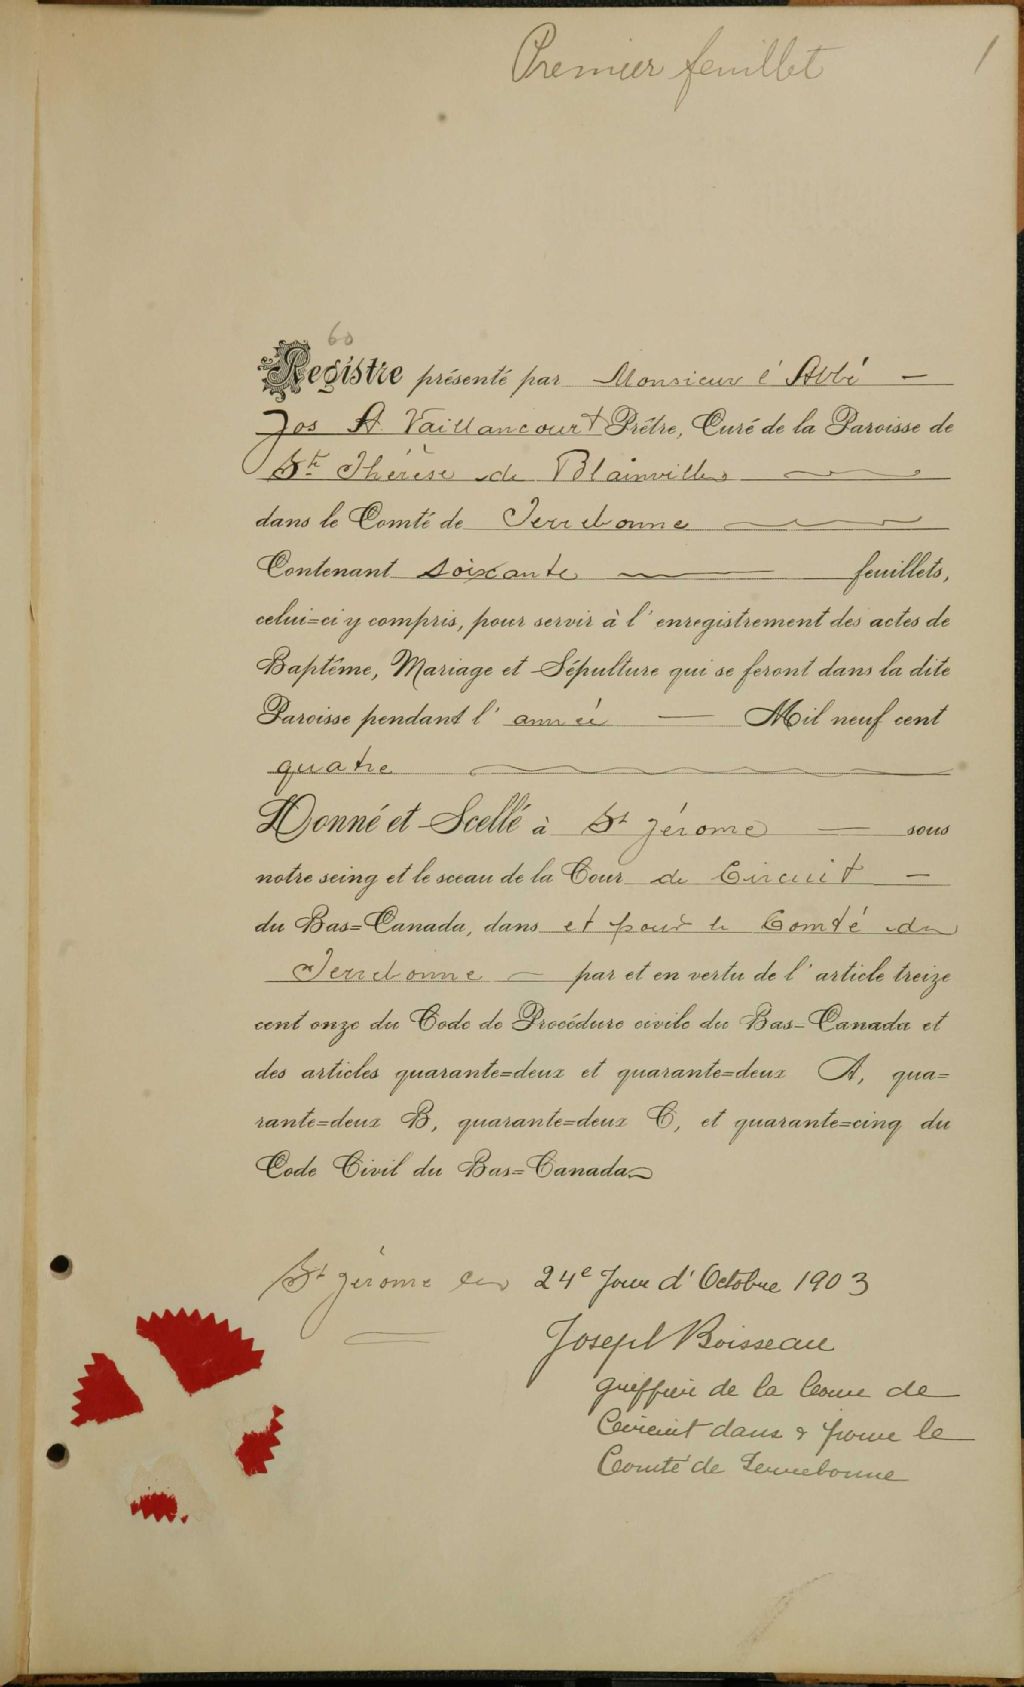 Premier feuillet
1
60
Registre présenté par Monsieur l'Abbé
Jos A. Vaillancourt Prêtre, Curé de la Paroisse de
Ste Thérèse de Blainville
dans le Comté de Terrebonne
Contenant soixante feuillets,
celui=ci y compris, pour servir à l'enregistrement des actes de
Baptême, Mariage et Sépulture qui se feront dans la dite
Paroisse pendant l'année Mil neuf cent
quatre
Donné et Scellé à St Jérome sous
notre seing et le sceau de la Cour de Circuit
du Bas=Canada, dans et pour le Comté de
Terrebonne par et en vertu de l'article treize
cent onze du Code de Procédure civile du Bas=Canada et
des articles quarante=deux et quarante=deux A, qua=
rante=deux B, quarante=deux C, et quarante=cinq du
Code Civil du Bas=Canada.
St Jérome le 24e Jour d'Octobre 1903
Joseph Boisseau
greffier de la Cour de
Circuit dans & pour le
Comté de Terrebonne